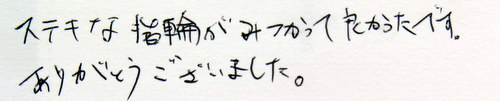 ステキな指輪がみつかって良かったです。
ありがとうございました。